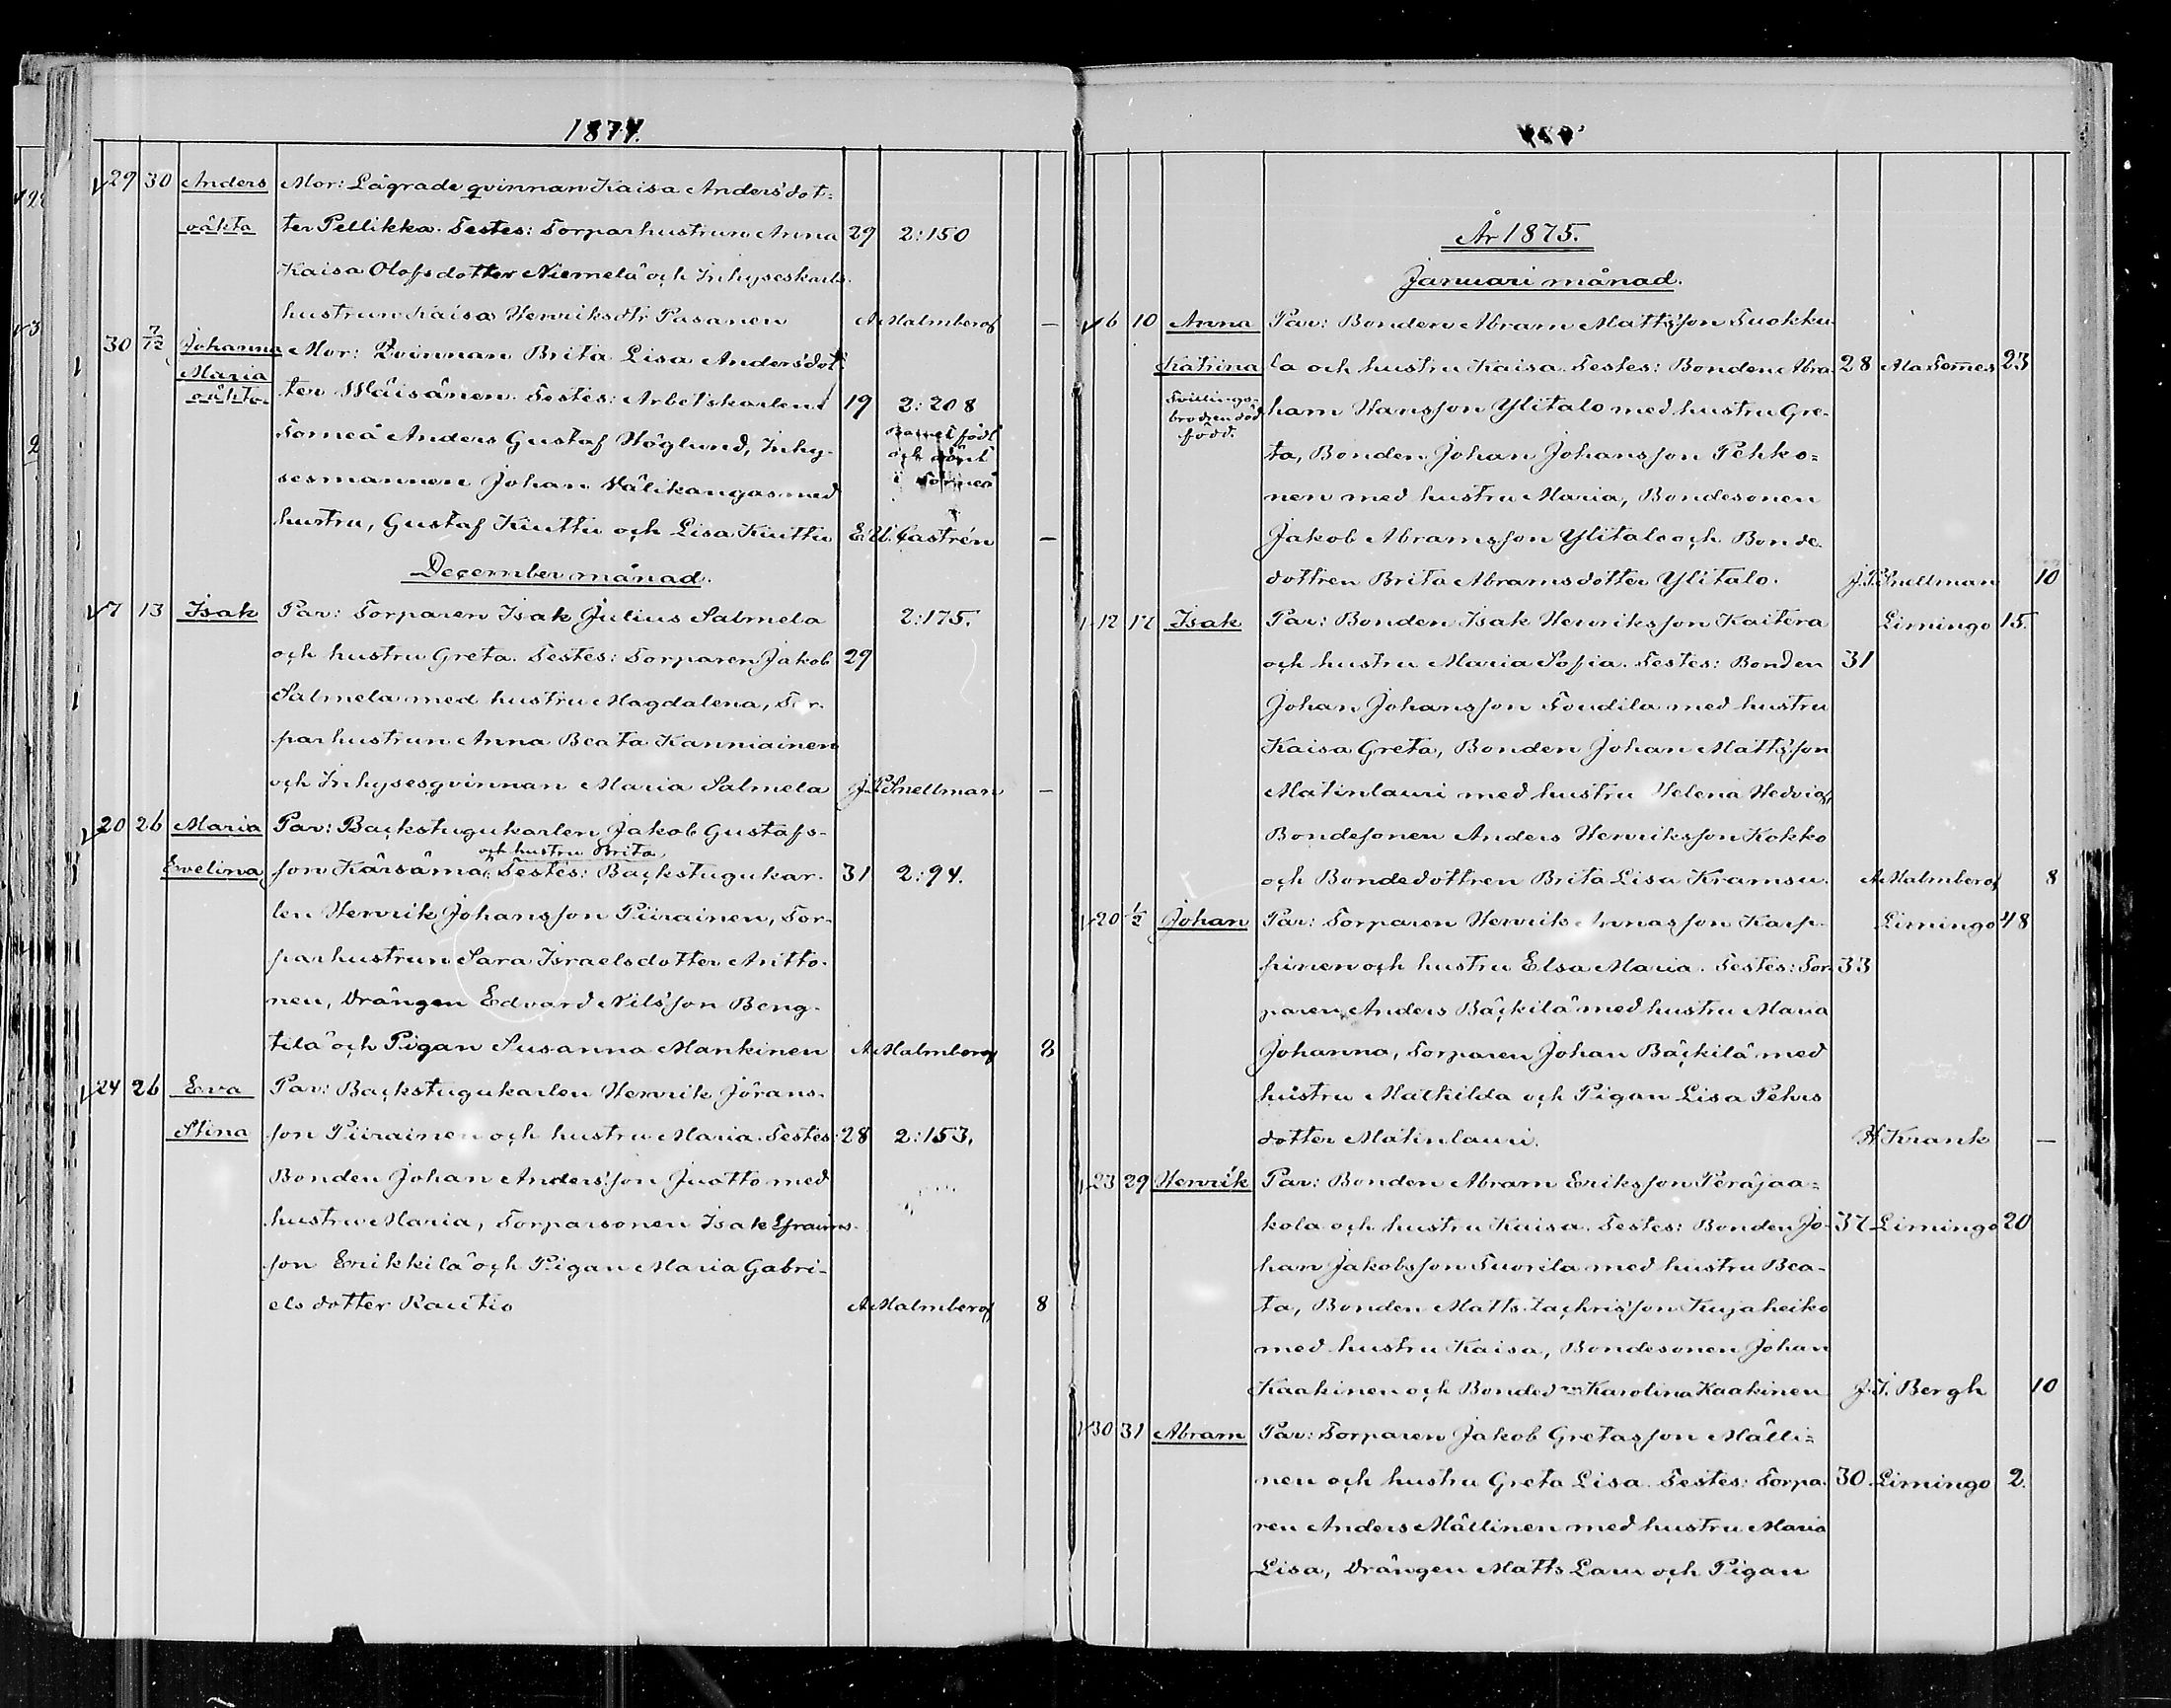 1874.
29 30 Anders Mor: Lägrade qvinnan Kaisa Anders'dot-
oäkta ter Pellikka. Testes: Torparhustrun Anna 29 2:150
Kaisa Olofsdotter Niemelä och Inhyseskarls-
hustrun Kaisa Henriksdtr Pasanen A Malmberg —
30 7/12 Johanna Mor: Qvinnan Brita Lisa Andersdot-
Maria
oäkta ter Wäisänen. Testes: Arbetskarlen i 19 2:208
Torneå Anders Gustaf Höglund, Inhy- Barnet född
sesmannen Johan Välikangas med och döpt i Torneå
hustru, Gustaf Kiuttu och Lisa Kiuttu E. U. Castrén —
December månad.
7 13 Isak Par: Torparen Isak Julius Salmela 2:175.
och hustru Greta. Testes: Torparen Jakob 29
Salmela med hustru Magdalena, Tor-
parhustrun Anna Beata Kanniainen
och Inhysesqvinnan Maria Salmela J. P. Snellman —
20 26 Maria Par: Backstugukarlen Jakob Gustafs-
och hustru Brita
Evelina son Kärsämä. Testes: Backstugukar- 31 2:94.
len Henrik Johansson Piirainen, Tor-
parhustrun Sara Israelsdotter Anitto-
nen, Drängen Edvard Nilsson Beng-
tilä och Pigan Susanna Mankinen A Malmberg 8
24 26 Eva Par: Backstugukarlen Henrik Jörans-
Stina son Piirainen och hustru Maria. Testes: 28 2:153.
Bonden Johan Andersson Juotto med
hustru Maria, Torparsonen Isak Efraims-
son Erikkilä och Pigan Maria Gabri-
els dotter Rautio A Malmberg 8
År 1875.
Januari månad.
6 10 Anna Par: Bonden Abram Mattsson Tuokku-
Katrina la och hustru Kaisa. Testes: Bonden Abra- 28 Ala Temmes 23
Tvillings-
brodren död
född.
ham Hansson Ylitalo med hustru Gre-
ta, Bonden Johan Johansson Pehko-
nen med hustru Maria, Bondesonen
Jakob Abramsson Ylitalo och Bonde-
dottren Brita Abramsdotter Ylitalo. J. P. Snellman 10
12 17 Isak Par: Bonden Isak Henriksson Kaitera Limingo 15.
och hustru Maria Sofia. Testes: Bonden 31
Johan Johansson Toudila med hustru
Kaisa Greta, Bonden Johan Mattsson
Matinlauri med hustru Helena Hedvig,
Bondesonen Anders Henriksson Kokko
och Bondedottren Brita Lisa Kramsu. A Malmberg 8
20 1/2 Johan Par: Torparen Henrik Annasson Karp- Limingo 48
pinen och hustru Elsa Maria. Testes: Tor- 33
paren Anders Bäckilä med hustru Maria
Johanna, Torparen Johan Bäckilä med
hustru Mathilda och Pigan Lisa Pehrs
dotter Matinlauri. H Krank —
23 29 Henrik Par: Bonden Abram Eriksson Peräjaa-
kola och hustru Kaisa. Testes: Bonden Jo- 37 Limingo 20
han Jakobsson Tuorila med hustru Bea-
ta, Bonden Matts Zachrisson Kujaheiko
med hustru Kaisa, Bondesonen Johan
Kaakinen och Bonded:n Karolina Kaakinen J. T. Bergh 10
30 31 Abram Par: Torparen Jakob Gretasson Mälli-
nen och hustru Greta Lisa. Testes: Torpa- 30. Limingo 2.
ren Anders Mällinen med hustru Maria
Lisa, Drängen Matts Lau och Pigan